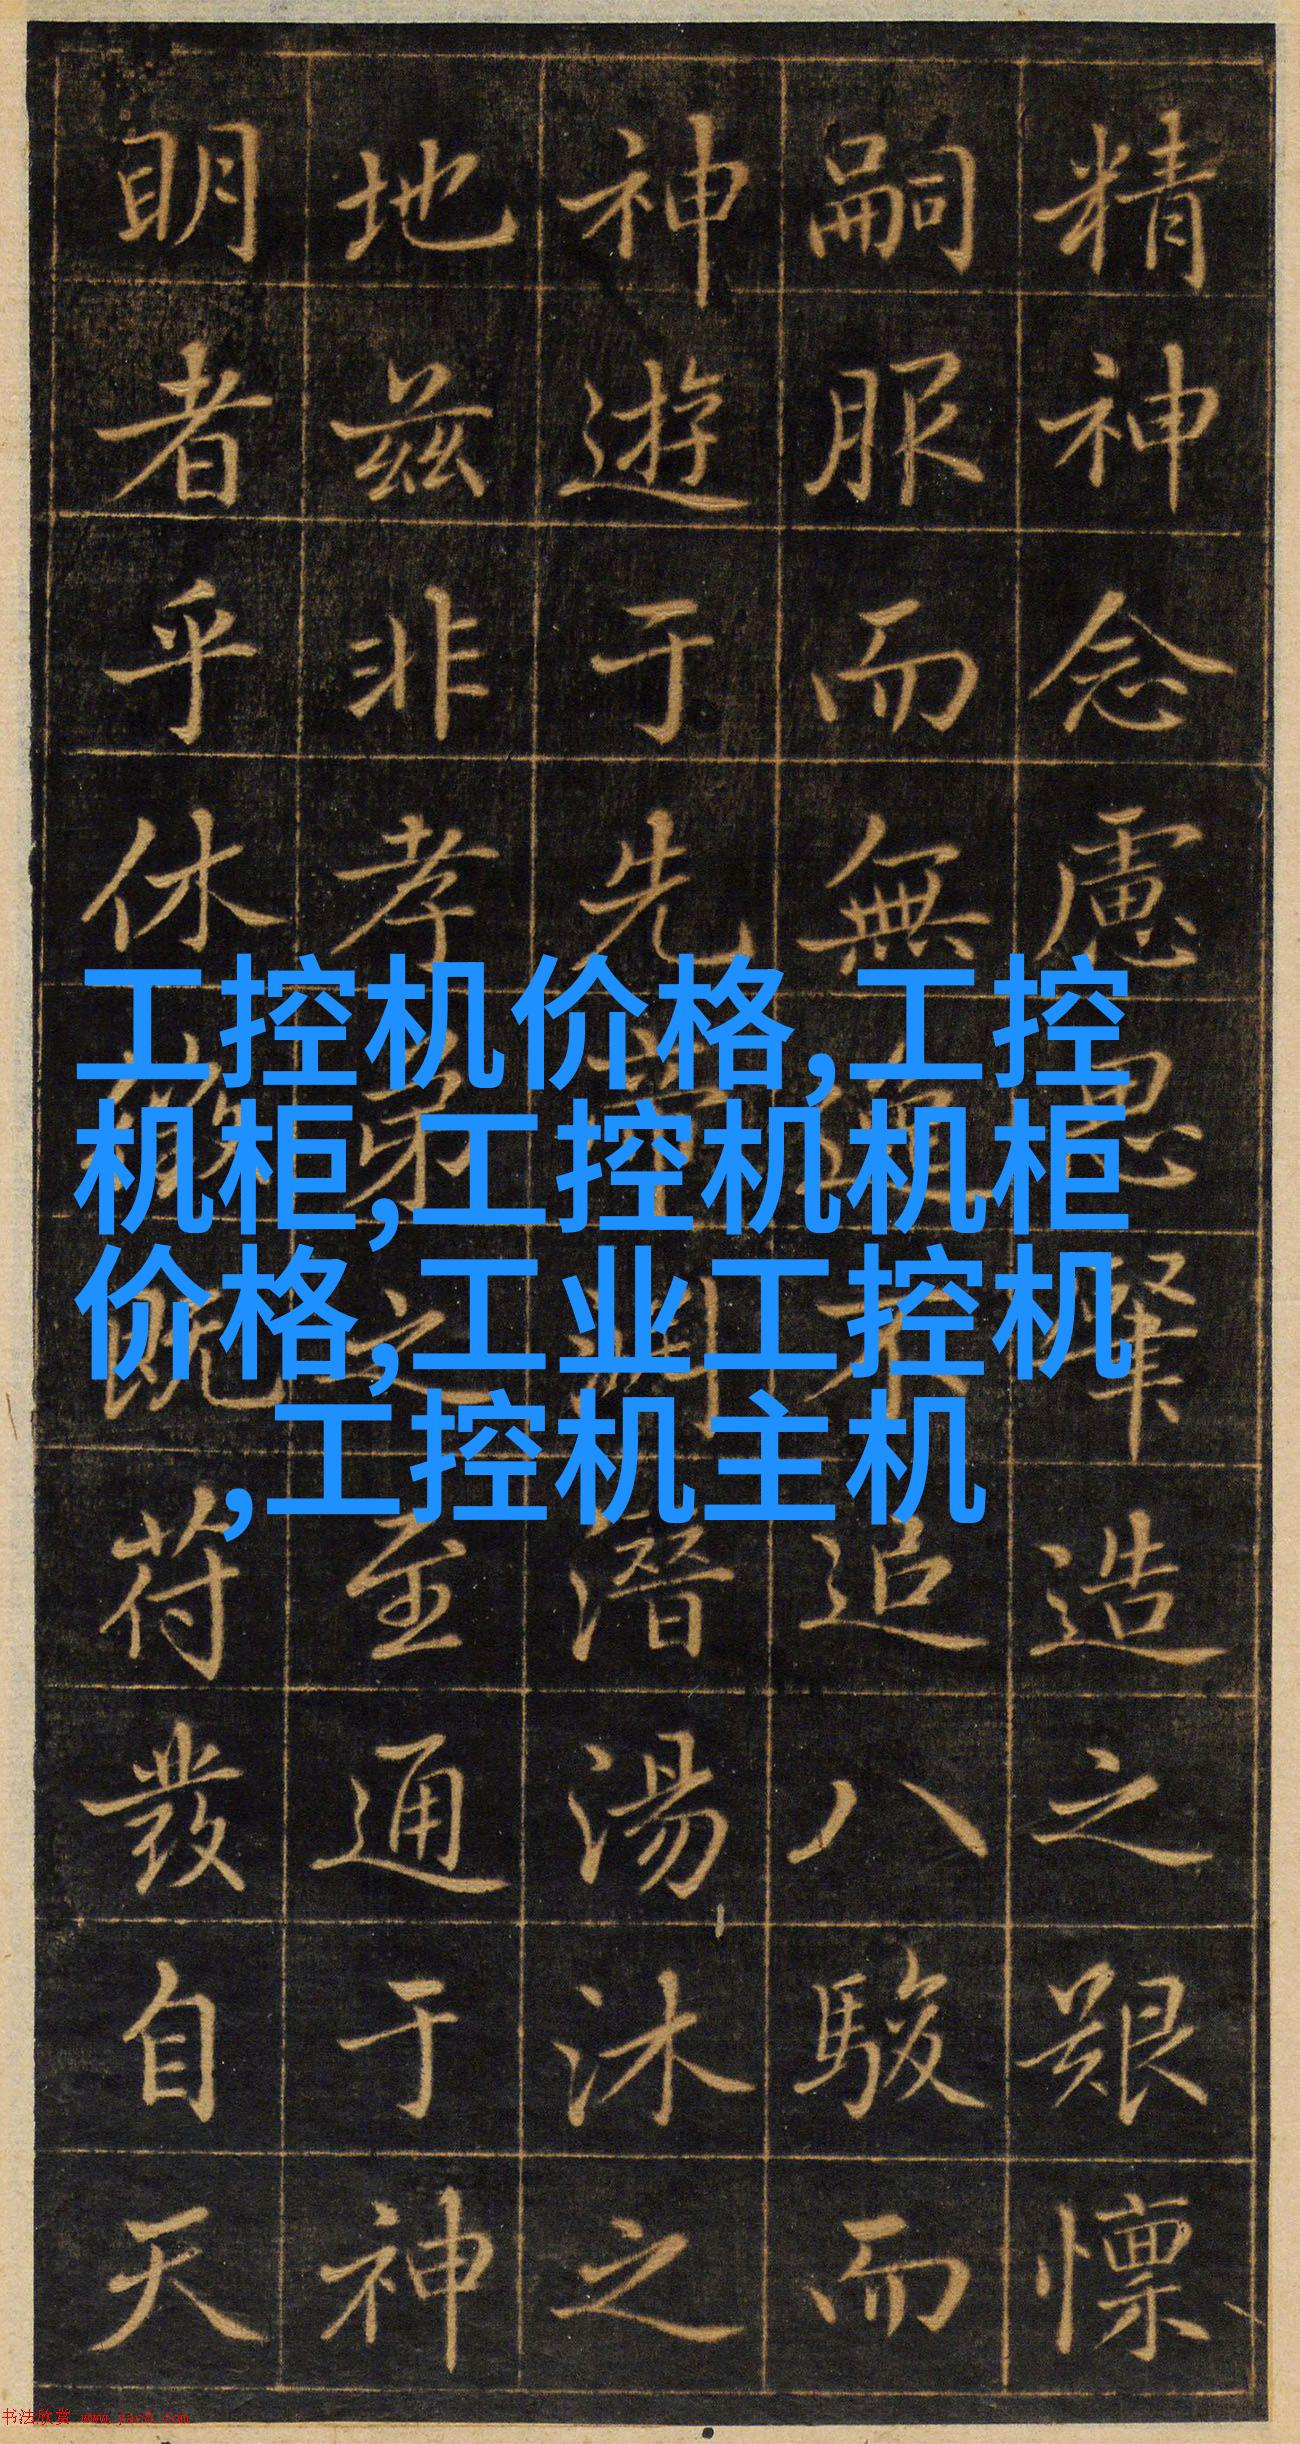 精神念慮思肇造之艱懍
嗣服而無不追八駿而
神遊于先潛湯沐之
地兹非孝弟之至通于神
明者乎休既苻發自天
工控机价格,工控
机柜,工控机机柜
价格,工业工控机
,工控机主机
书法欣赏 www.yac8.com